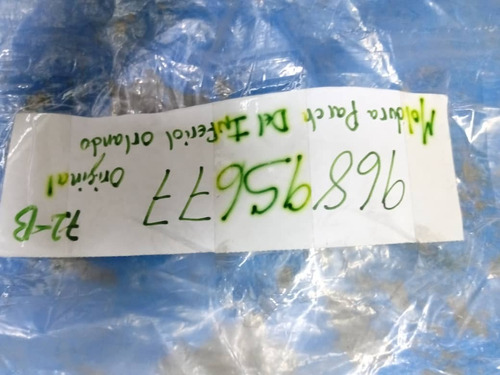 Moldura Parch Del Inferiol Orlando
96895677 Original
72-B